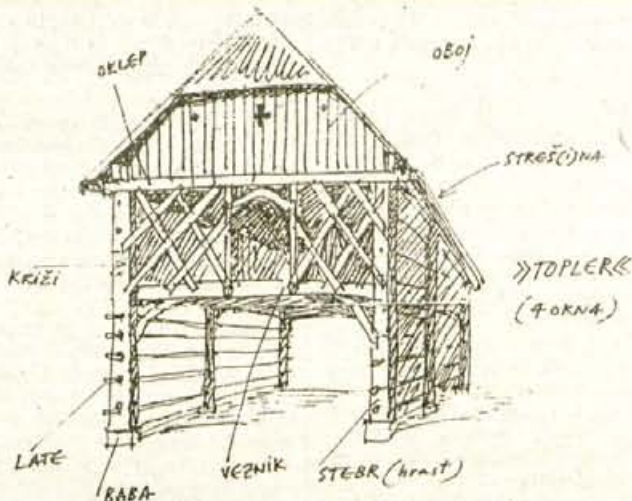 OKLEP
OBOJ
STREŠ(I)NA
KRIŽI
»TOPLER«
(4 OKNA)
LATE
VEZNIK
STEBR (hrast)
BABA